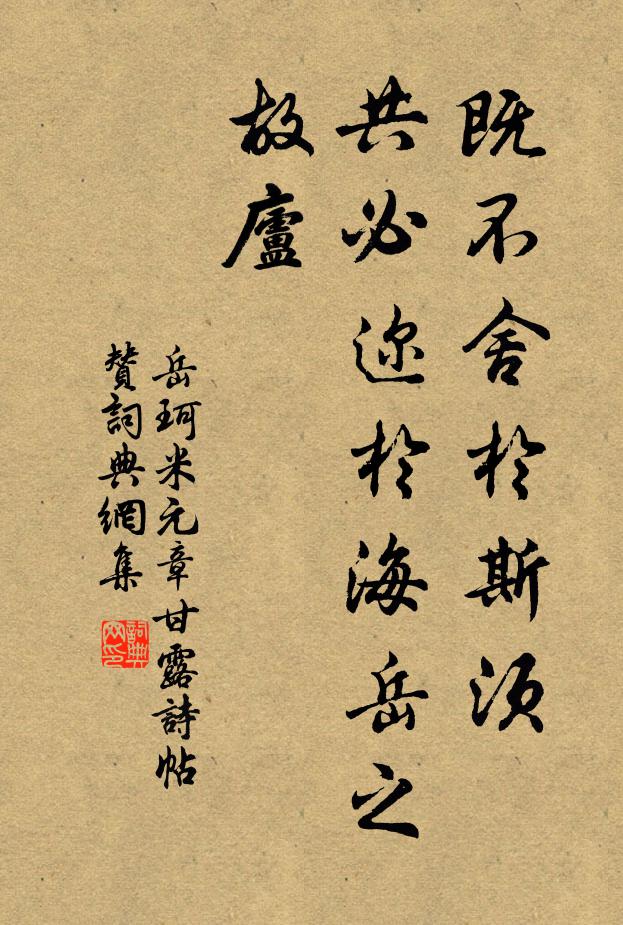 既不舍於斯須
共必邇於海岳之
故廬
岳珂米元章甘露詩帖
贊詞典網集
詞典
网印